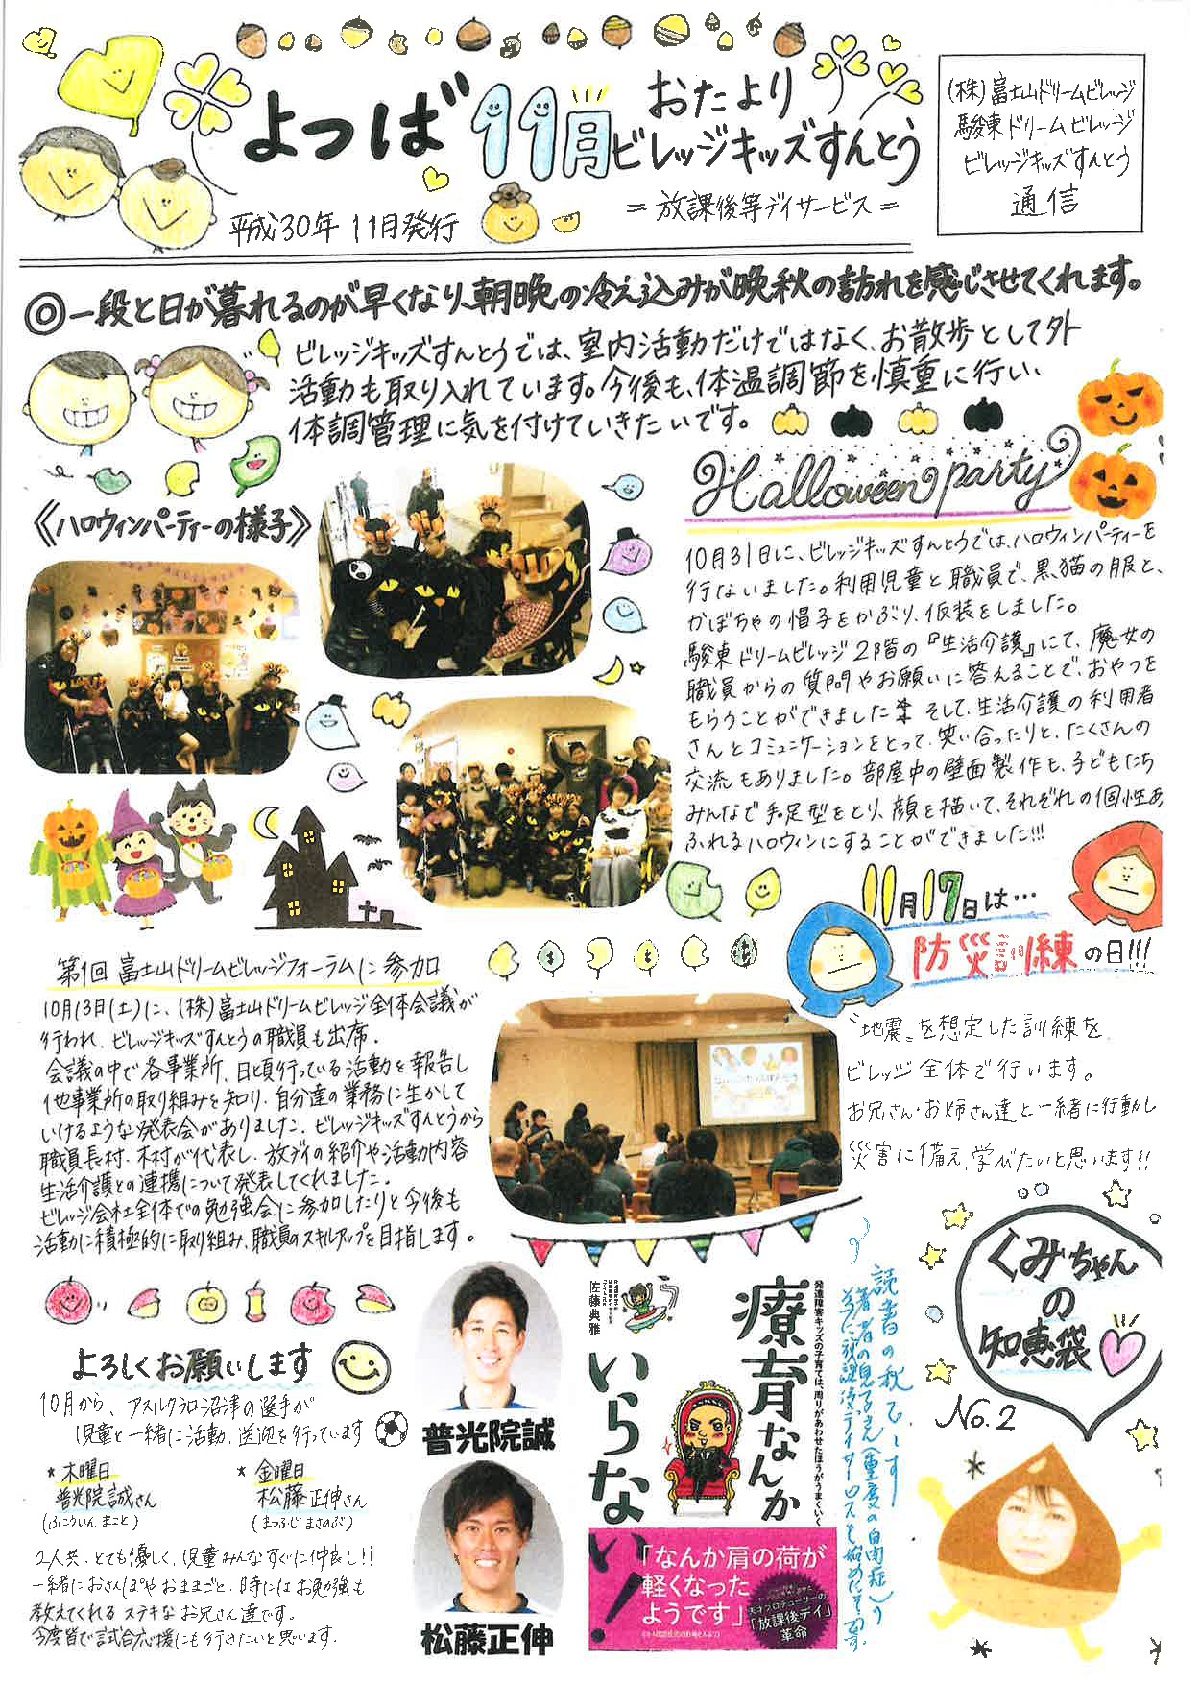 よつば 11月 おたより
ビレッジキッズすんとう
=放課後等デイサービス=
平成30年 11月発行
(株)富士山ドリームビレッジ
駿東ドリームビレッジ
ビレッジキッズすんとう
通信
◎一段と日が暮れるのが早くなり、朝晩の冷え込みが晩秋の訪れを感じさせてくれます。
ビレッジキッズすんとうでは、室内活動だけではなく、お散歩として外
活動も取り入れています。今後も、体温調節を慎重に行い、
体調管理に気を付けていきたいです。
《ハロウィンパーティーの様子》
Halloween party
10月31日に、ビレッジキッズすんとうでは、ハロウィンパーティーを
行ないました。利用児童と職員で、黒猫の服と、
かぼちゃの帽子をかぶり、仮装をしました。
駿東ドリームビレッジ2階の『生活介護』にて、魔女の
職員からの質問やお願いに答えることで、おやつを
もらうことができました そして、生活介護の利用者
さんとコミュニケーションをとって、笑い合ったりと、たくさんの
交流もありました。部屋中の壁面製作も、子どもたち
みんなで手足型をとり、顔を描いて、それぞれの個性あ
ふれるハロウィンにすることができました!!!
11月17日は…
防災訓練の日!!!
"地震"を想定した訓練を
ビレッジ全体で行います。
お兄さん・お姉さん達と一緒に行動し
災害に備え、学びたいと思います!!
第1回 富士山ドリームビレッジフォーラムに参加
10月13日(土)に、(株)富士山ドリームビレッジ全体会議が
行われ、ビレッジキッズすんとうの職員も出席。
会議の中で各事業所、日頃行っている活動を報告し
他事業所の取り組みを知り、自分達の業務に生かして
いけるような発表会がありました。ビレッジキッズすんとうから
職員長村、木村が代表し、放デイの紹介や活動内容
生活介護との連携について発表してくれました。
ビレッジ会社全体での勉強会に参加したりと今後も
活動に積極的に取り組み、職員のスキルアップを目指します。
よろしくお願いします
10月から、アスルクラロ沼津の選手が
児童と一緒に活動、送迎を行っています
★木曜日
普光院誠さん
(ふこういん まこと)
★金曜日
松藤正伸さん
(まつふじ まさのぶ)
2人共、とても優しく、児童みんなすぐに仲良し!!
一緒におさんぽやおままごと、時にはお勉強も
教えてくれるステキなお兄さん達です。
今度皆で試合応援にも行きたいと思います。
普光院誠
松藤正伸
発達障害キッズの子育ては、周りがあわせたほうがうまくいく
療育なんか
いらない!
佐藤典雅
「なんか肩の荷が
軽くなった
ようです」
「放課後デイ」
革命
読書の秋で〜す
著者の息子さん(重度の自閉症)の
くみちゃん
の
知恵袋
No.2